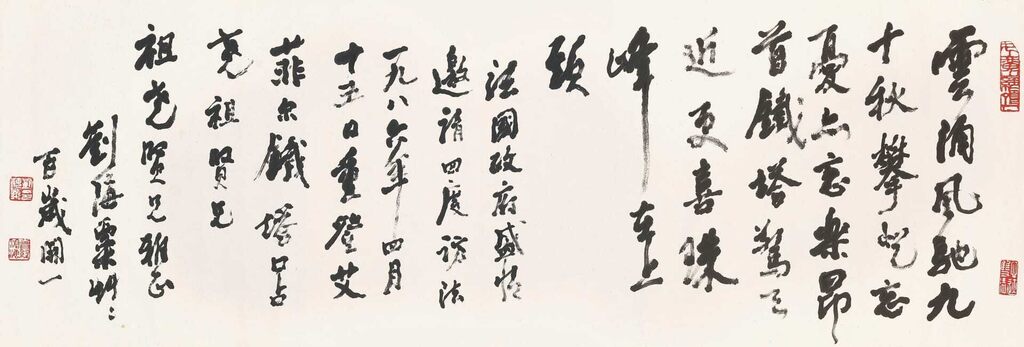 雲涌風馳九
十秋攀登忘
憂亦忘樂昂
首鐵塔驚天
近更喜珠
峰在上
頭
法國政府盛情
邀請四度訪法
一九八六年四月
十五日重登艾
菲尔鐵塔口占
尭祖賢兄
祖尭賢兄雅正
劉海粟艸〻
百歲開一